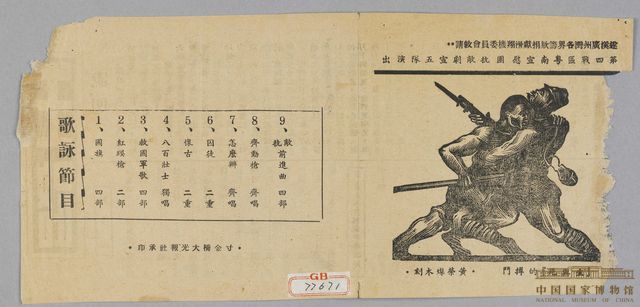 廣州灣各界籌欵捐獻滑翔機委員會敦請
第四戰區粤南宣慰團抗敵劇宣五隊演出
的搏鬥
·黄榮燦木刻·
歌詠節目
1、國旗 四部
2、紅纓槍 二部
3、救國軍歌 四部
4、八百壯士 獨唱
5、懷古 二重
6、囚徒 二重
7、怎麼辦 齊唱
8、齊動槍 齊唱
9、抗敵前進曲 四部
·寸金橋大光報社承印·
GB
77671
中国国家博物馆
NATIONAL MUSEUM OF CHINA